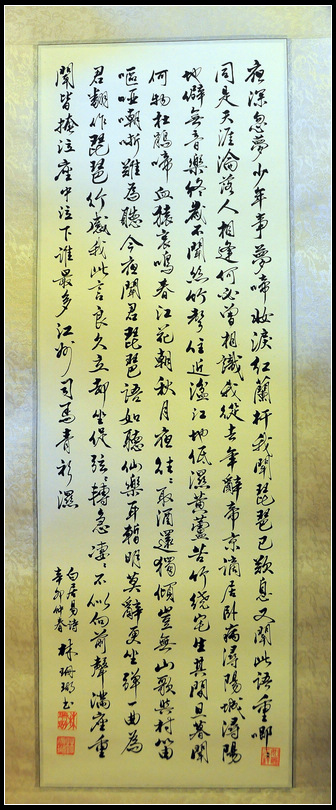 夜深忽夢少年事夢啼妝淚紅蘭杆我聞琵琶已歎息又聞此語重唧
同是天涯淪落人相逢何必曾相識我從去年辭帝京謫居臥病潯陽城潯陽
地僻無音樂終歲不聞絲竹聲住近湓江地低濕黃蘆苦竹繞宅生其間旦暮聞
何物杜鵑啼血猿哀鳴春江花朝秋月夜往々取酒還獨傾豈無山歌與村笛
嘔啞嘲哳難為聽今夜聞君琵琶語如聽仙樂耳暫明莫辭更坐彈一曲為
君翻作琵琶行感我此言良久立却坐促弦々轉急淒々不似向前聲滿座重
聞皆掩泣座中泣下誰最多江州司馬青衫濕
白居易詩
辛卯仲春
林珊瑚書